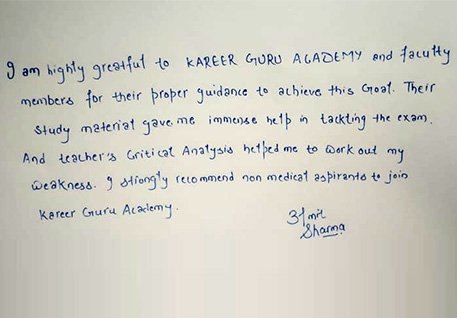 I am highly greatful to KAREER GURU ACADEMY and faculty
members for their proper guidance to achieve this Goal. Their
study material gave me immense help in tackling the exam.
And teacher's Critical Analysis helped me to work out my
weakness. I strongly recommend non medical aspirants to join
Kareer Guru Academy.
Sharma